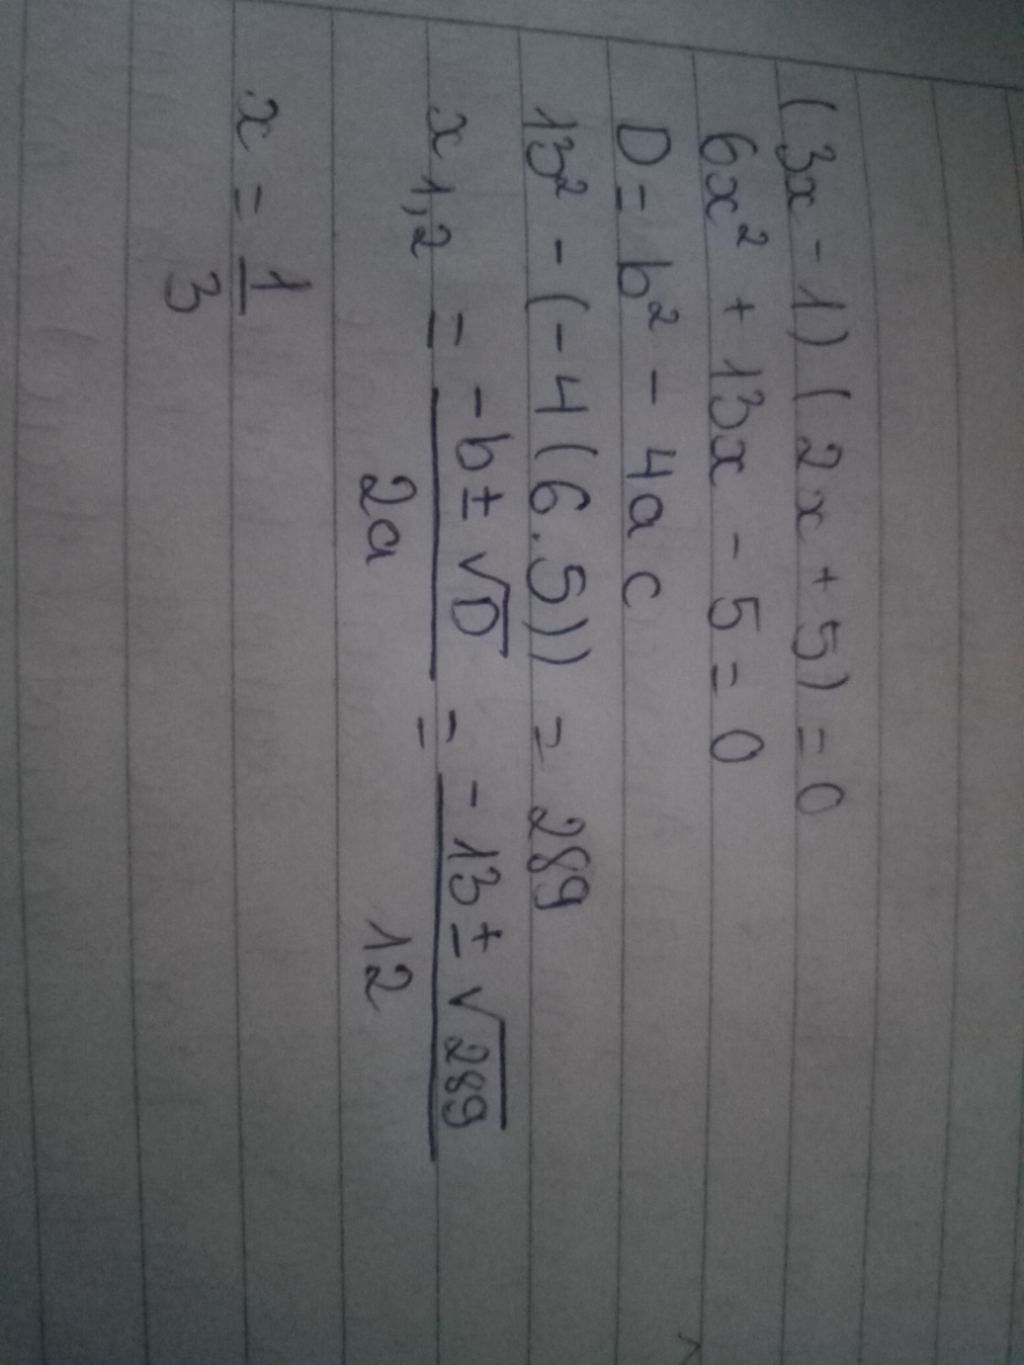 (3x - 1) (2x + 5) = 0
6x² + 13x - 5 = 0
D = b² - 4ac
13² - (-4(6.5)) = 289
x1,2 = (-b ± √D)/2a = (-13 ± √289)/12 =
x = 1/3